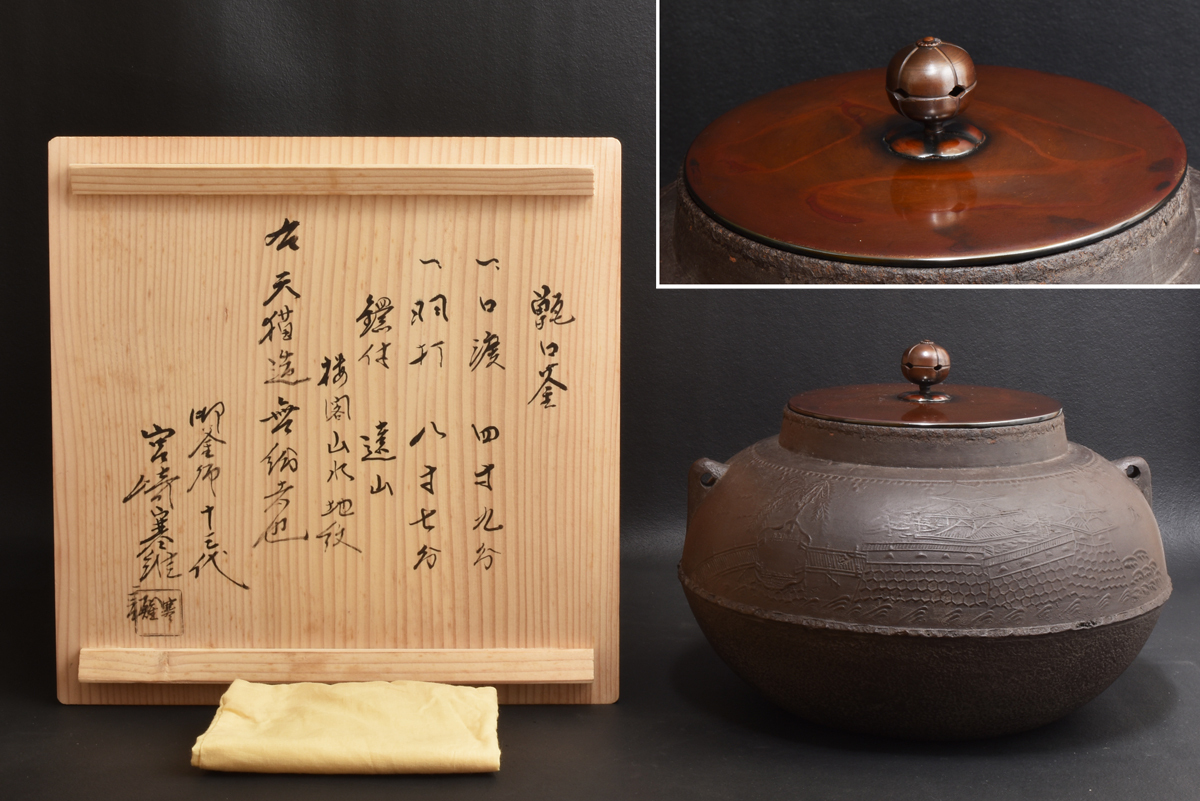 甑口釜
一、口渡 四寸九分
一、羽打 八寸七分
鐶付 遠山
楼閣山水地紋
右天猫造無紛者也
御釜師十三代
宮崎寒雉